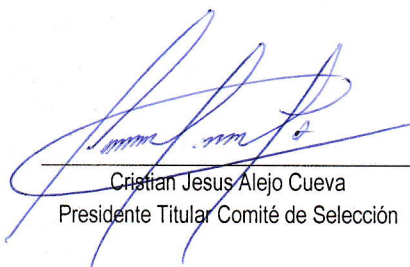 Cristian Jesus Alejo Cueva
Presidente Titular Comité de Selección